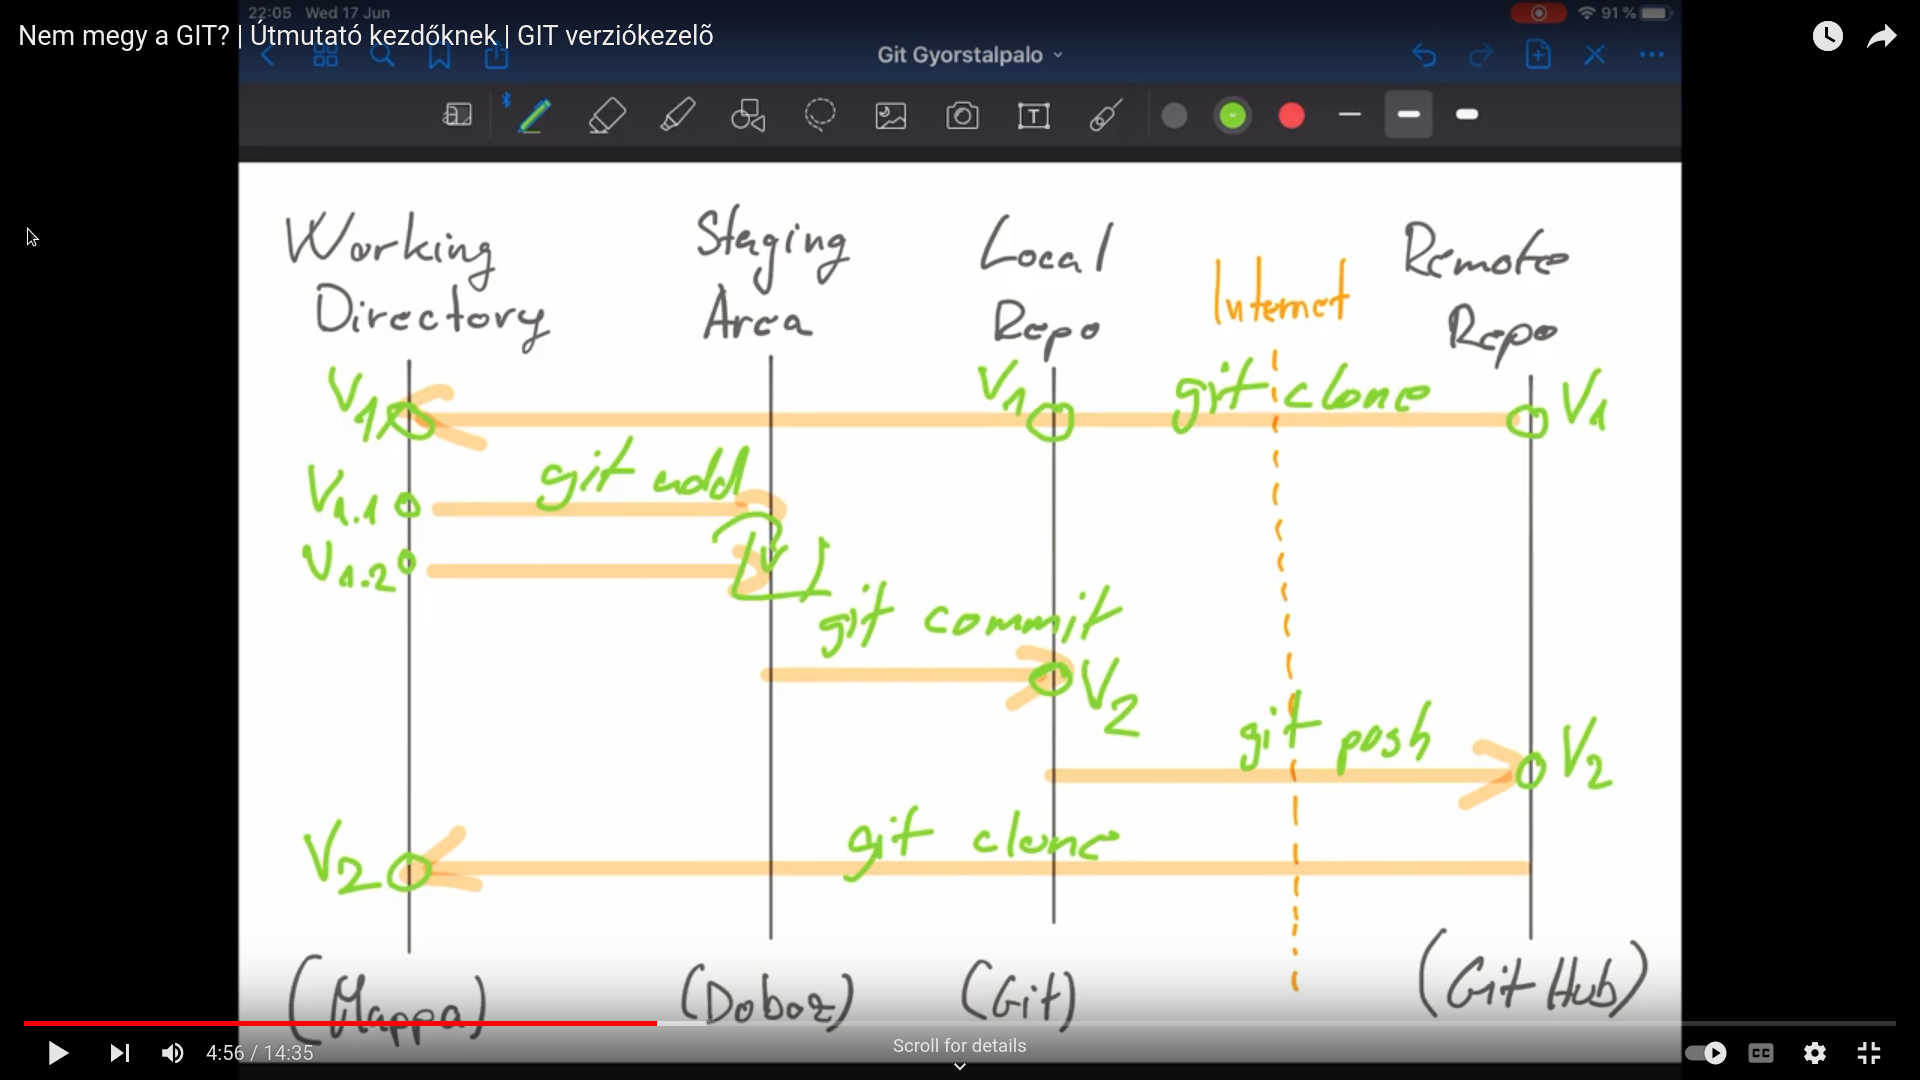 22:05 Wed 17 Jun
91%
Nem megy a GIT? | Útmutató kezdőknek | GIT verziókezelõ
Git Gyorstalpalo
T
Working Directory
Staging Area
Local Repo
Internet
Remote Repo
V1
V1
git clone
V1
git add
V1.1
V1.2
git commit
V2
git push
V2
git clone
V2
(Mappa)
(Doboz)
(Git)
(GitHub)
4:56 / 14:35
Scroll for details
CC